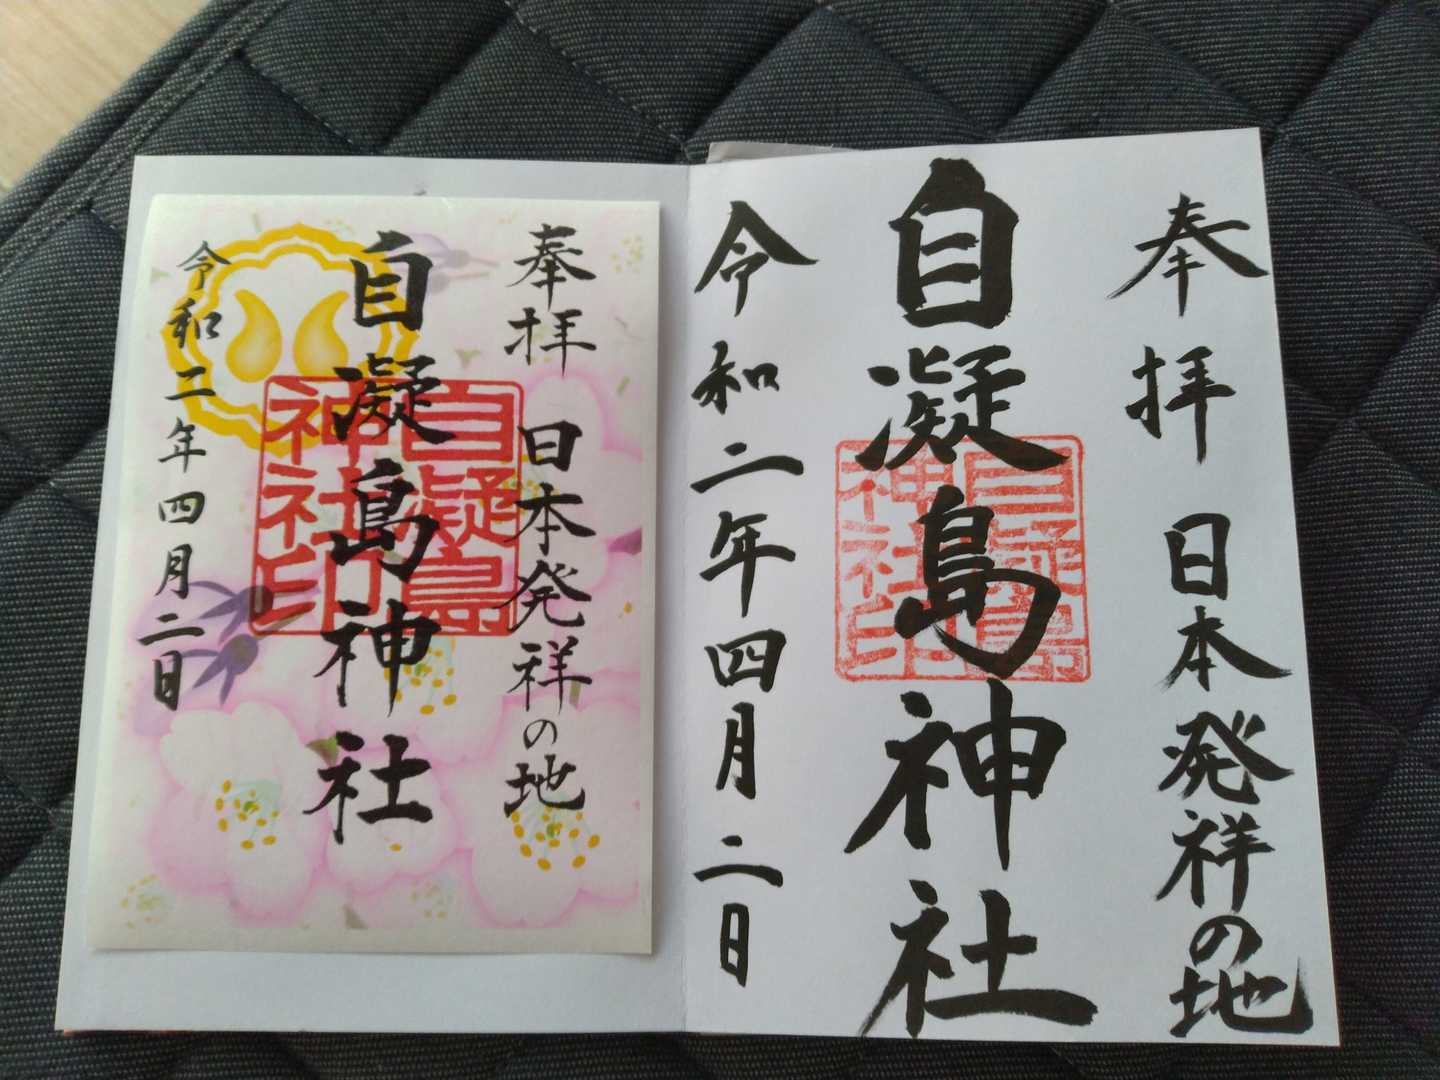 奉拝 日本発祥の地
自凝島神社
自凝島神社印
令和二年四月二日
奉拝 日本発祥の地
自凝島神社
自凝島神社印
令和二年四月二日